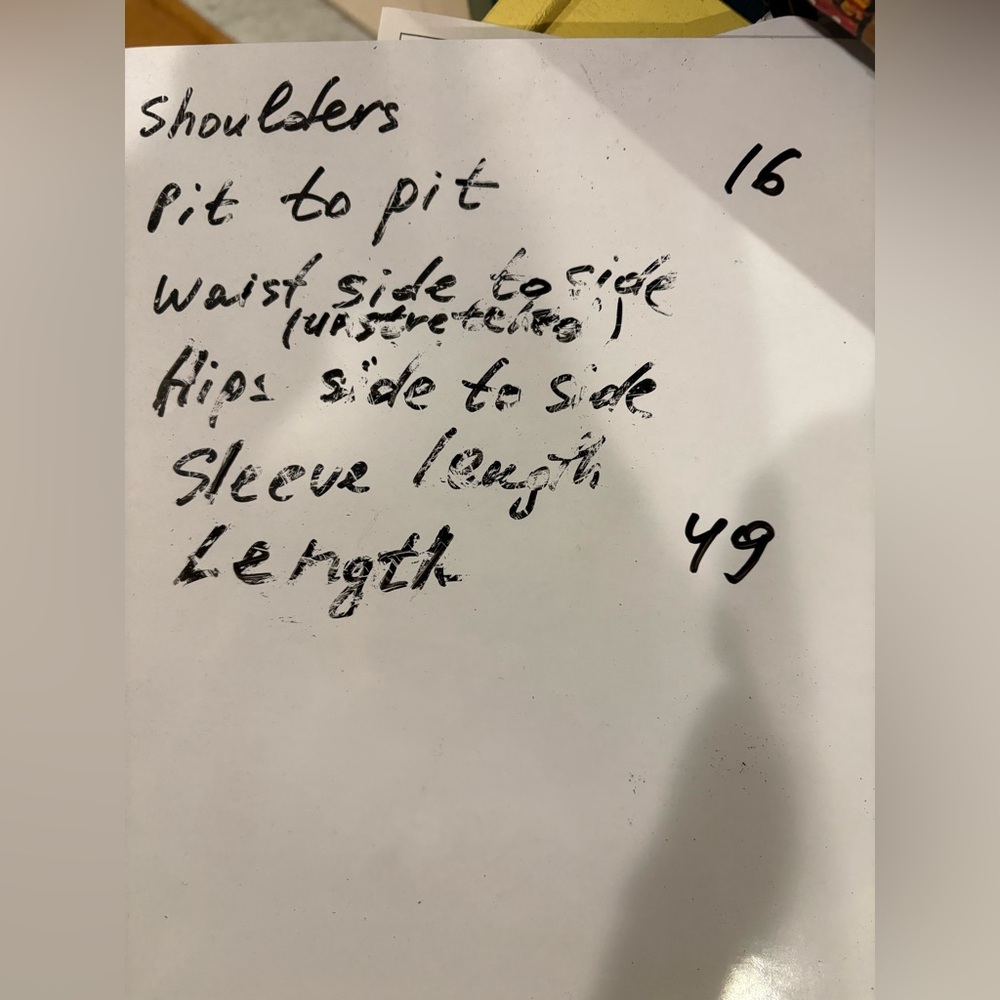 Shoulders
Pit to pit 16
Waist side to side
(unstretched)
Hips side to side
Sleeve length
Length 49